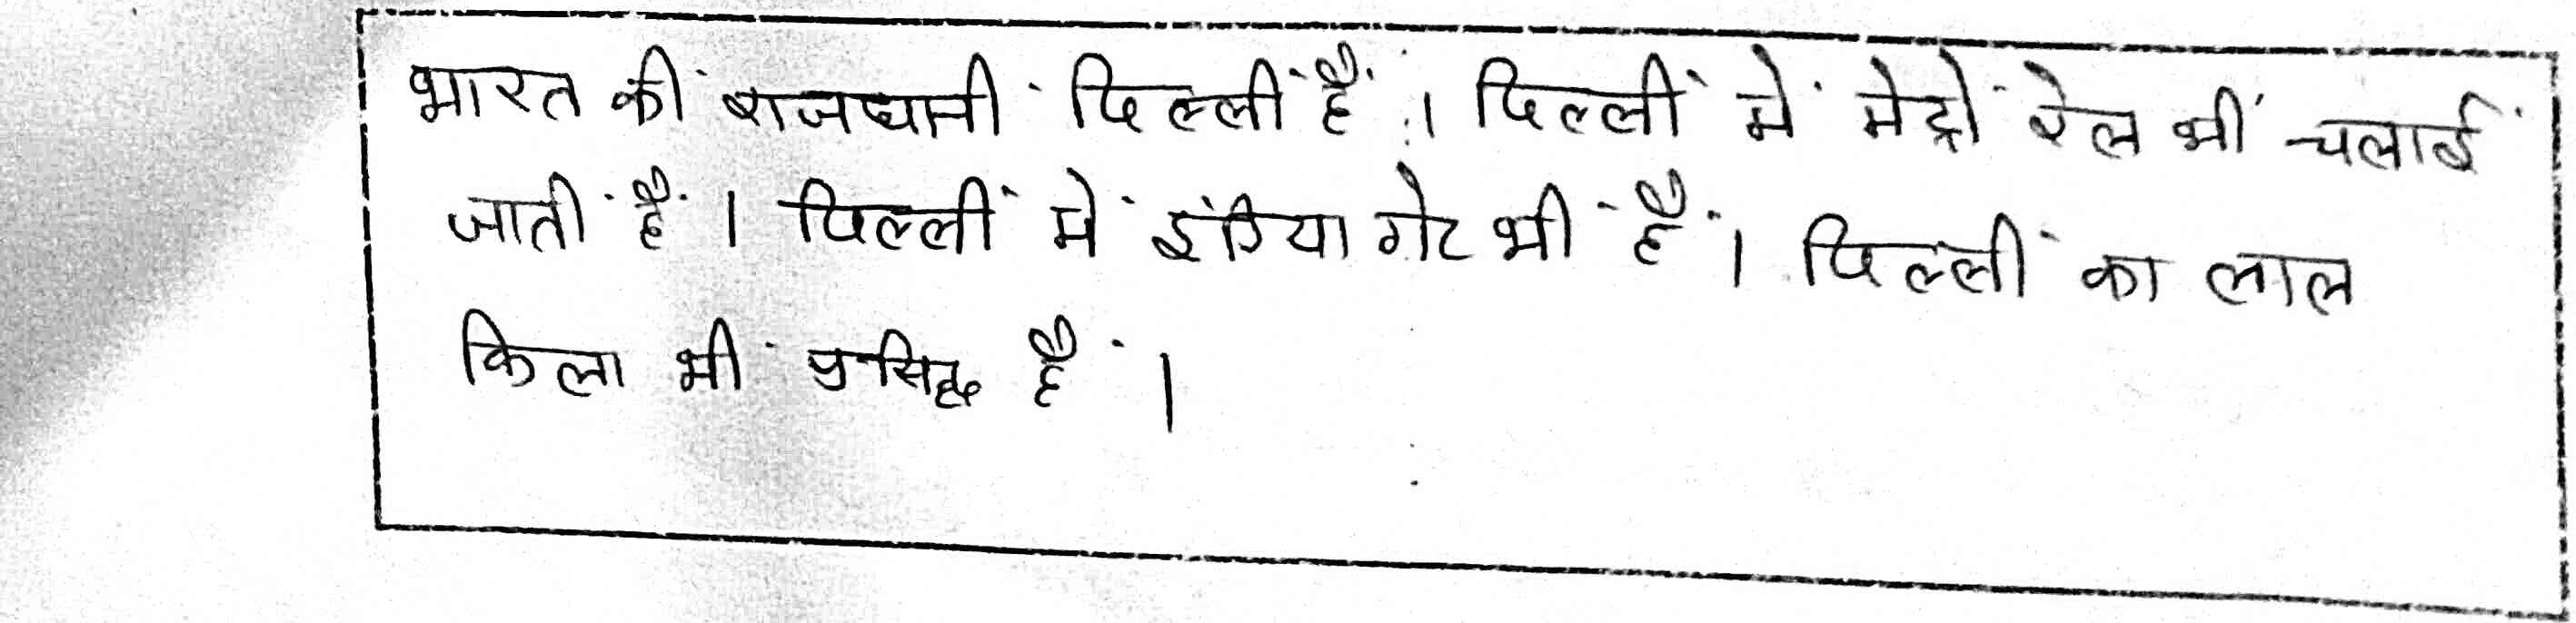 भारत की राजधानी दिल्ली है । दिल्ली में मेट्रो रेल भी चलाई
जाती है । दिल्ली में इंडिया गेट भी है । दिल्ली का लाल
किला भी प्रसिद्ध है ।